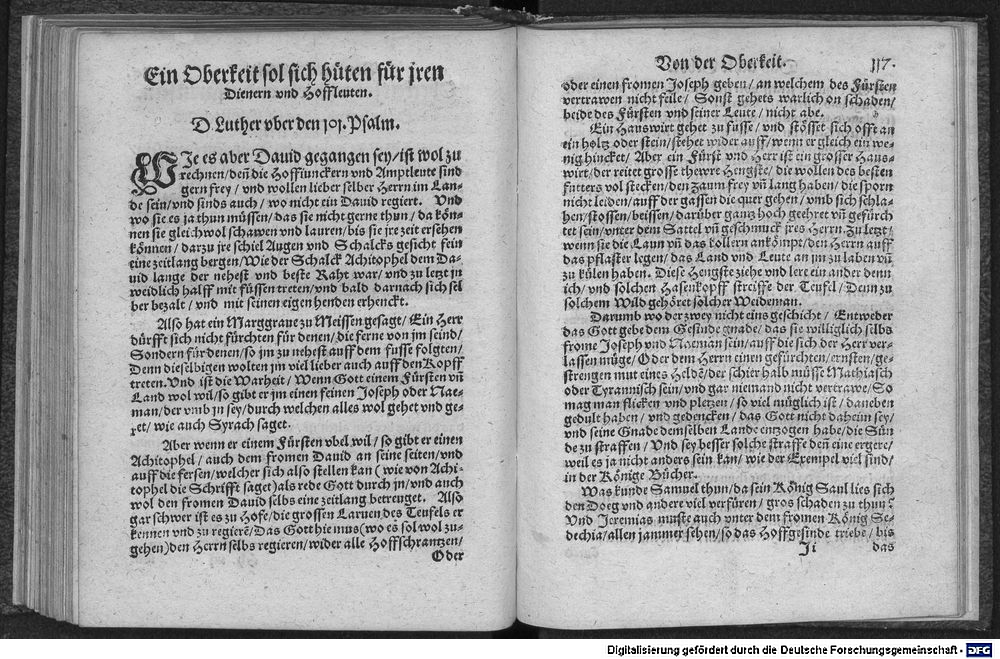 Ein Oberkeit sol sich hüten für jren
Dienern vnd Hoffleuten.
D. Luther vber den 101. Psalm.
WJe es aber Dauid gegangen sey/ ist wol zu
rechnen/ deñ die Hoffiunckern vnd Amptleute sind
gern frey / vnd wollen lieber selber Herrn im Lan-
de sein/ vnd sinds auch / wo nicht ein Dauid regiert. Vnd
wo sie es ja thun müssen/ das sie nicht gerne thun / da kön-
nen sie gleichwol schawen vnd lauren/ bis sie jre zeit ersehen
können / darzu jre schiel Augen vnd Schalcks gesicht fein
eine zeitlang bergen/ Wie der Schalck Achitophel dem Da-
uid lange der nehest vnd beste Raht war/ vnd zu letzt jn
weidlich halff mit füssen treten/ vnd bald darnach sich sel
ber bezalt / vnd mit seinen eigen henden erhenckt.
Also hat ein Marggraue zu Meissen gesagt/ Ein Herr
dürfft sich nicht fürchten für denen/ die ferne von jm seind/
Sondern für denen/ so jm zu nehest auff dem fusse folgten/
Denn dieselbigen wolten jm viel lieber auch auff den Kopff
treten. Vnd ist die Warheit / Wenn Gott einem Fürsten vñ
Land wol wil/ so gibt er jm einen feinen Joseph oder Nae-
man/ der vmb jn sey/ durch welchen alles wol gehet vnd ge-
ret/ wie auch Syrach saget.
Aber wenn er einem Fürsten vbel wil / so gibt er einen
Achitophel / auch dem fromen Dauid an seine seiten/ vnd
auff die fersen/ welcher sich also stellen kan ( wie von Achi-
tophel die Schrifft saget ) als rede Gott durch jn/ vnd auch
wol den fromen Dauid selbs eine zeitlang betreuget. Also
gar schwer ist es zu Hofe/ die grossen Laruen des Teufels er
kennen vnd zu regierē/ Das Gott hie mus ( wo es sol wol zu-
gehen ) den Herrn selbs regieren/ wider alle Hoffschrantzen/
Oder
Von der Oberkeit. 117.
oder einen fromen Joseph geben / an welchem des Fürsten
vertrawen nicht feile / Sonst gehets warlich on schaden/
beide des Fürsten vnd seiner Leute / nicht abe.
Ein Hauswirt gehet zu fusse / vnd stösset sich offt an
ein holtz oder stein/ stehet wider auff/ wenn er gleich ein we-
nig hincket / Aber ein Fürst vnd Herr ist ein grosser Haus-
wirt/ der reitet grosse thewre Hengste/ die wollen des besten
futters vol stecken / den zaum frey vñ lang haben / die sporn
nicht leiden/ auff der gassen die quer gehen / vmb sich schla-
hen/ stossen / beissen / darüber gantz hoch geehret vñ gefürch
tet sein/ vnter dem Sattel vñ geschmuck jres Herrn. Zu letzt/
wenn sie die Laun vñ das kollern ankömpt/ den Herrn auff
das pflaster legen / das Land vnd Leute an jm zu laben vñ
zu külen haben. Diese Hengste ziehe vnd lere ein ander denn
ich/ vnd solchen Hasenkopff streiffe der Teufel / Denn zu
solchem Wild gehöret solcher Weideman.
Darumb wo der zwey nicht eins geschicht / Entweder
das Gott gebe dem Gesinde gnade / das sie williglich selbs
frome Joseph vnd Naeman sein/ auff die sich der Herr ver-
lassen müge / Oder dem Herrn einen gefürchten/ ernsten/ ge-
strengen mut eines Heldē/ der schier halb müsse Mathiasch
oder Tyrannisch sein/ vnd gar niemand nicht vertrawe / So
mag man flicken vnd pletzen / so viel müglich ist / daneben
gedult haben / vnd gedencken / das Gott nicht daheim sey/
vnd seine Gnade denselben Lande entzogen habe/ die Sün
de zu straffen / Vnd sey besser solche straffe deñ eine ergere/
weil es ja nicht anders sein kan / wie der Exempel viel sind/
in der Könige Bücher.
Was kunde Samuel thun/ da sein König Saul lies sich
den Doeg vnd andere viel verfüren / gros schaden zu thun?
Vnd Jeremias muste auch vnter dem fromen König Se-
dechia/ allen jammer sehen/ so das Hoffgesinde triebe / bis
Ji das
Digitalisierung gefördert durch die Deutsche Forschungsgemeinschaft - DFG